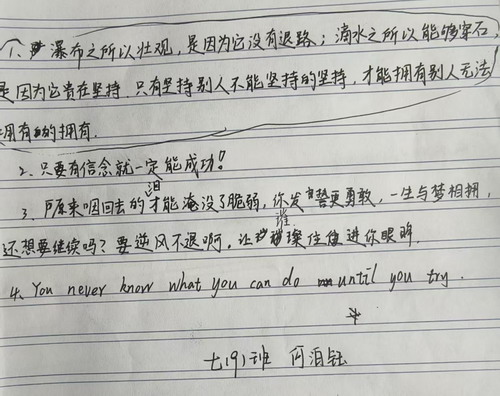 1、瀑布之所以壮观,是因为它没有退路;滴水之所以能够穿石,
是因为它贵在坚持.只有坚持别人不能坚持的坚持,才能拥有别人无法
拥有的拥有.
2、只要有信念就一定能成功!
3、原来咽回去的泪才能淹没了脆弱,你发誓更勇敢,一生与梦相拥,
还想要继续吗?要逆风不退啊,让璀璨住进你眼眸.
4、You never know what you can do until you try.
七(9)班 何泊钰